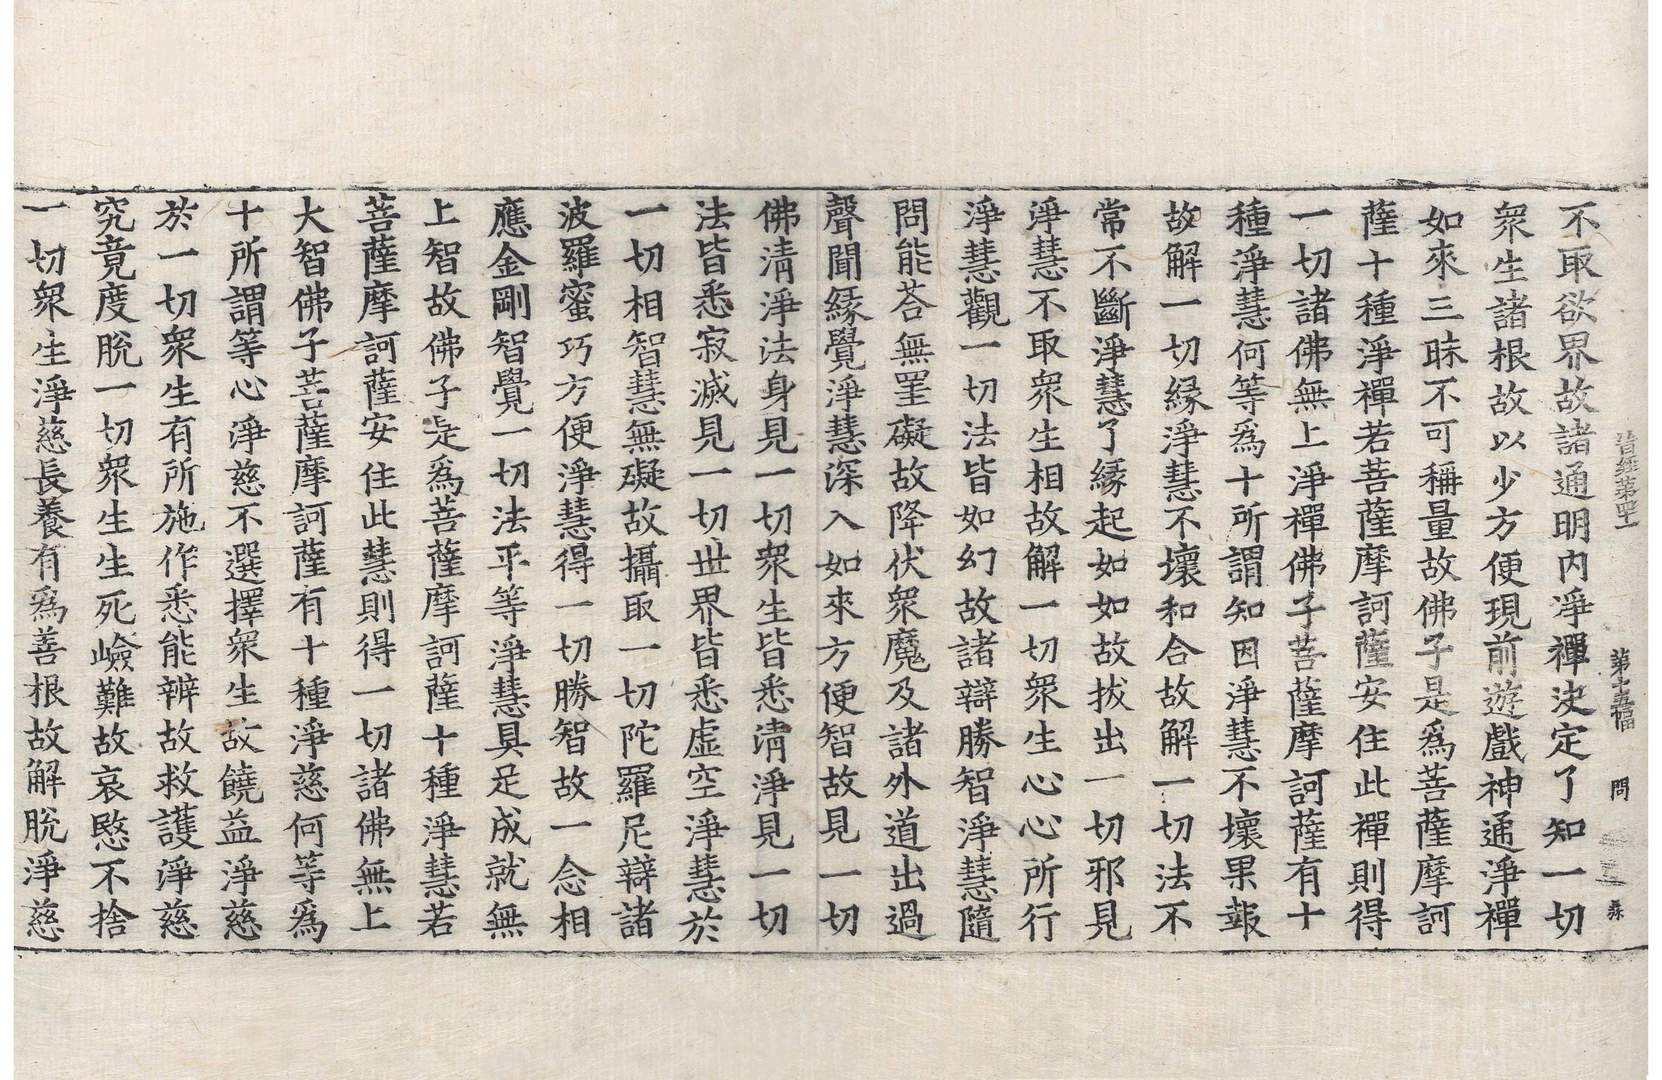 晋經第四十 第十五幅 問 森
不取欲界故諸通明内淨禪決定了知一切
衆生諸根故以少方便現前遊戲神通淨禪
如來三昧不可稱量故佛子是爲菩薩摩訶
薩十種淨禪若菩薩摩訶薩安住此禪則得
一切諸佛無上淨禪佛子菩薩摩訶薩有十
種淨慧何等爲十所謂知因淨慧不壞果報
故解一切縁淨慧不壞和合故解一切法不
常不斷淨慧了縁起如如故拔出一切邪見
淨慧不取衆生相故解一切衆生心心所行
淨慧觀一切法皆如幻故諸辯勝智淨慧隨
問能荅無罣礙故降伏衆魔及諸外道出過
聲聞縁覺淨慧深入如來方便智故見一切
佛清淨法身見一切衆生皆悉清淨見一切
法皆悉寂滅見一切世界皆悉虚空淨慧於
一切相智慧無礙故攝取一切陀羅尼辯諸
波羅蜜巧方便淨慧得一切勝智故一念相
應金剛智覺一切法平等淨慧具足成就無
上智故佛子是爲菩薩摩訶薩十種淨慧若
菩薩摩訶薩安住此慧則得一切諸佛無上
大智佛子菩薩摩訶薩有十種淨慈何等爲
十所謂等心淨慈不選擇衆生故饒益淨慈
於一切衆生有所施作悉能辨故救護淨慈
究竟度脫一切衆生生死嶮難故哀愍不捨
一切衆生淨慈長養有爲善根故解脫淨慈